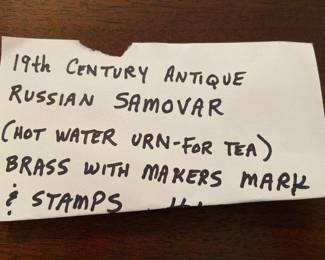 19th CENTURY ANTIQUE
RUSSIAN SAMOVAR
(HOT WATER URN-FOR TEA)
BRASS WITH MAKERS MARK
& STAMPS